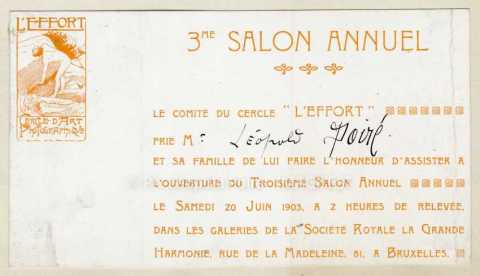 L'EFFORT
CERCLE D'ART
PHOTOGRAPHIQUE
3ME SALON ANNUEL
LE COMITÉ DU CERCLE "L'EFFORT"
PRIE Mr Léopold Poiré
ET SA FAMILLE DE LUI FAIRE L'HONNEUR D'ASSISTER A
L'OUVERTURE DU TROISIÈME SALON ANNUEL
LE SAMEDI 20 JUIN 1903, A 2 HEURES DE RELEVÉE,
DANS LES GALERIES DE LA SOCIÉTÉ ROYALE LA GRANDE
HARMONIE, RUE DE LA MADELEINE, 81, A BRUXELLES.